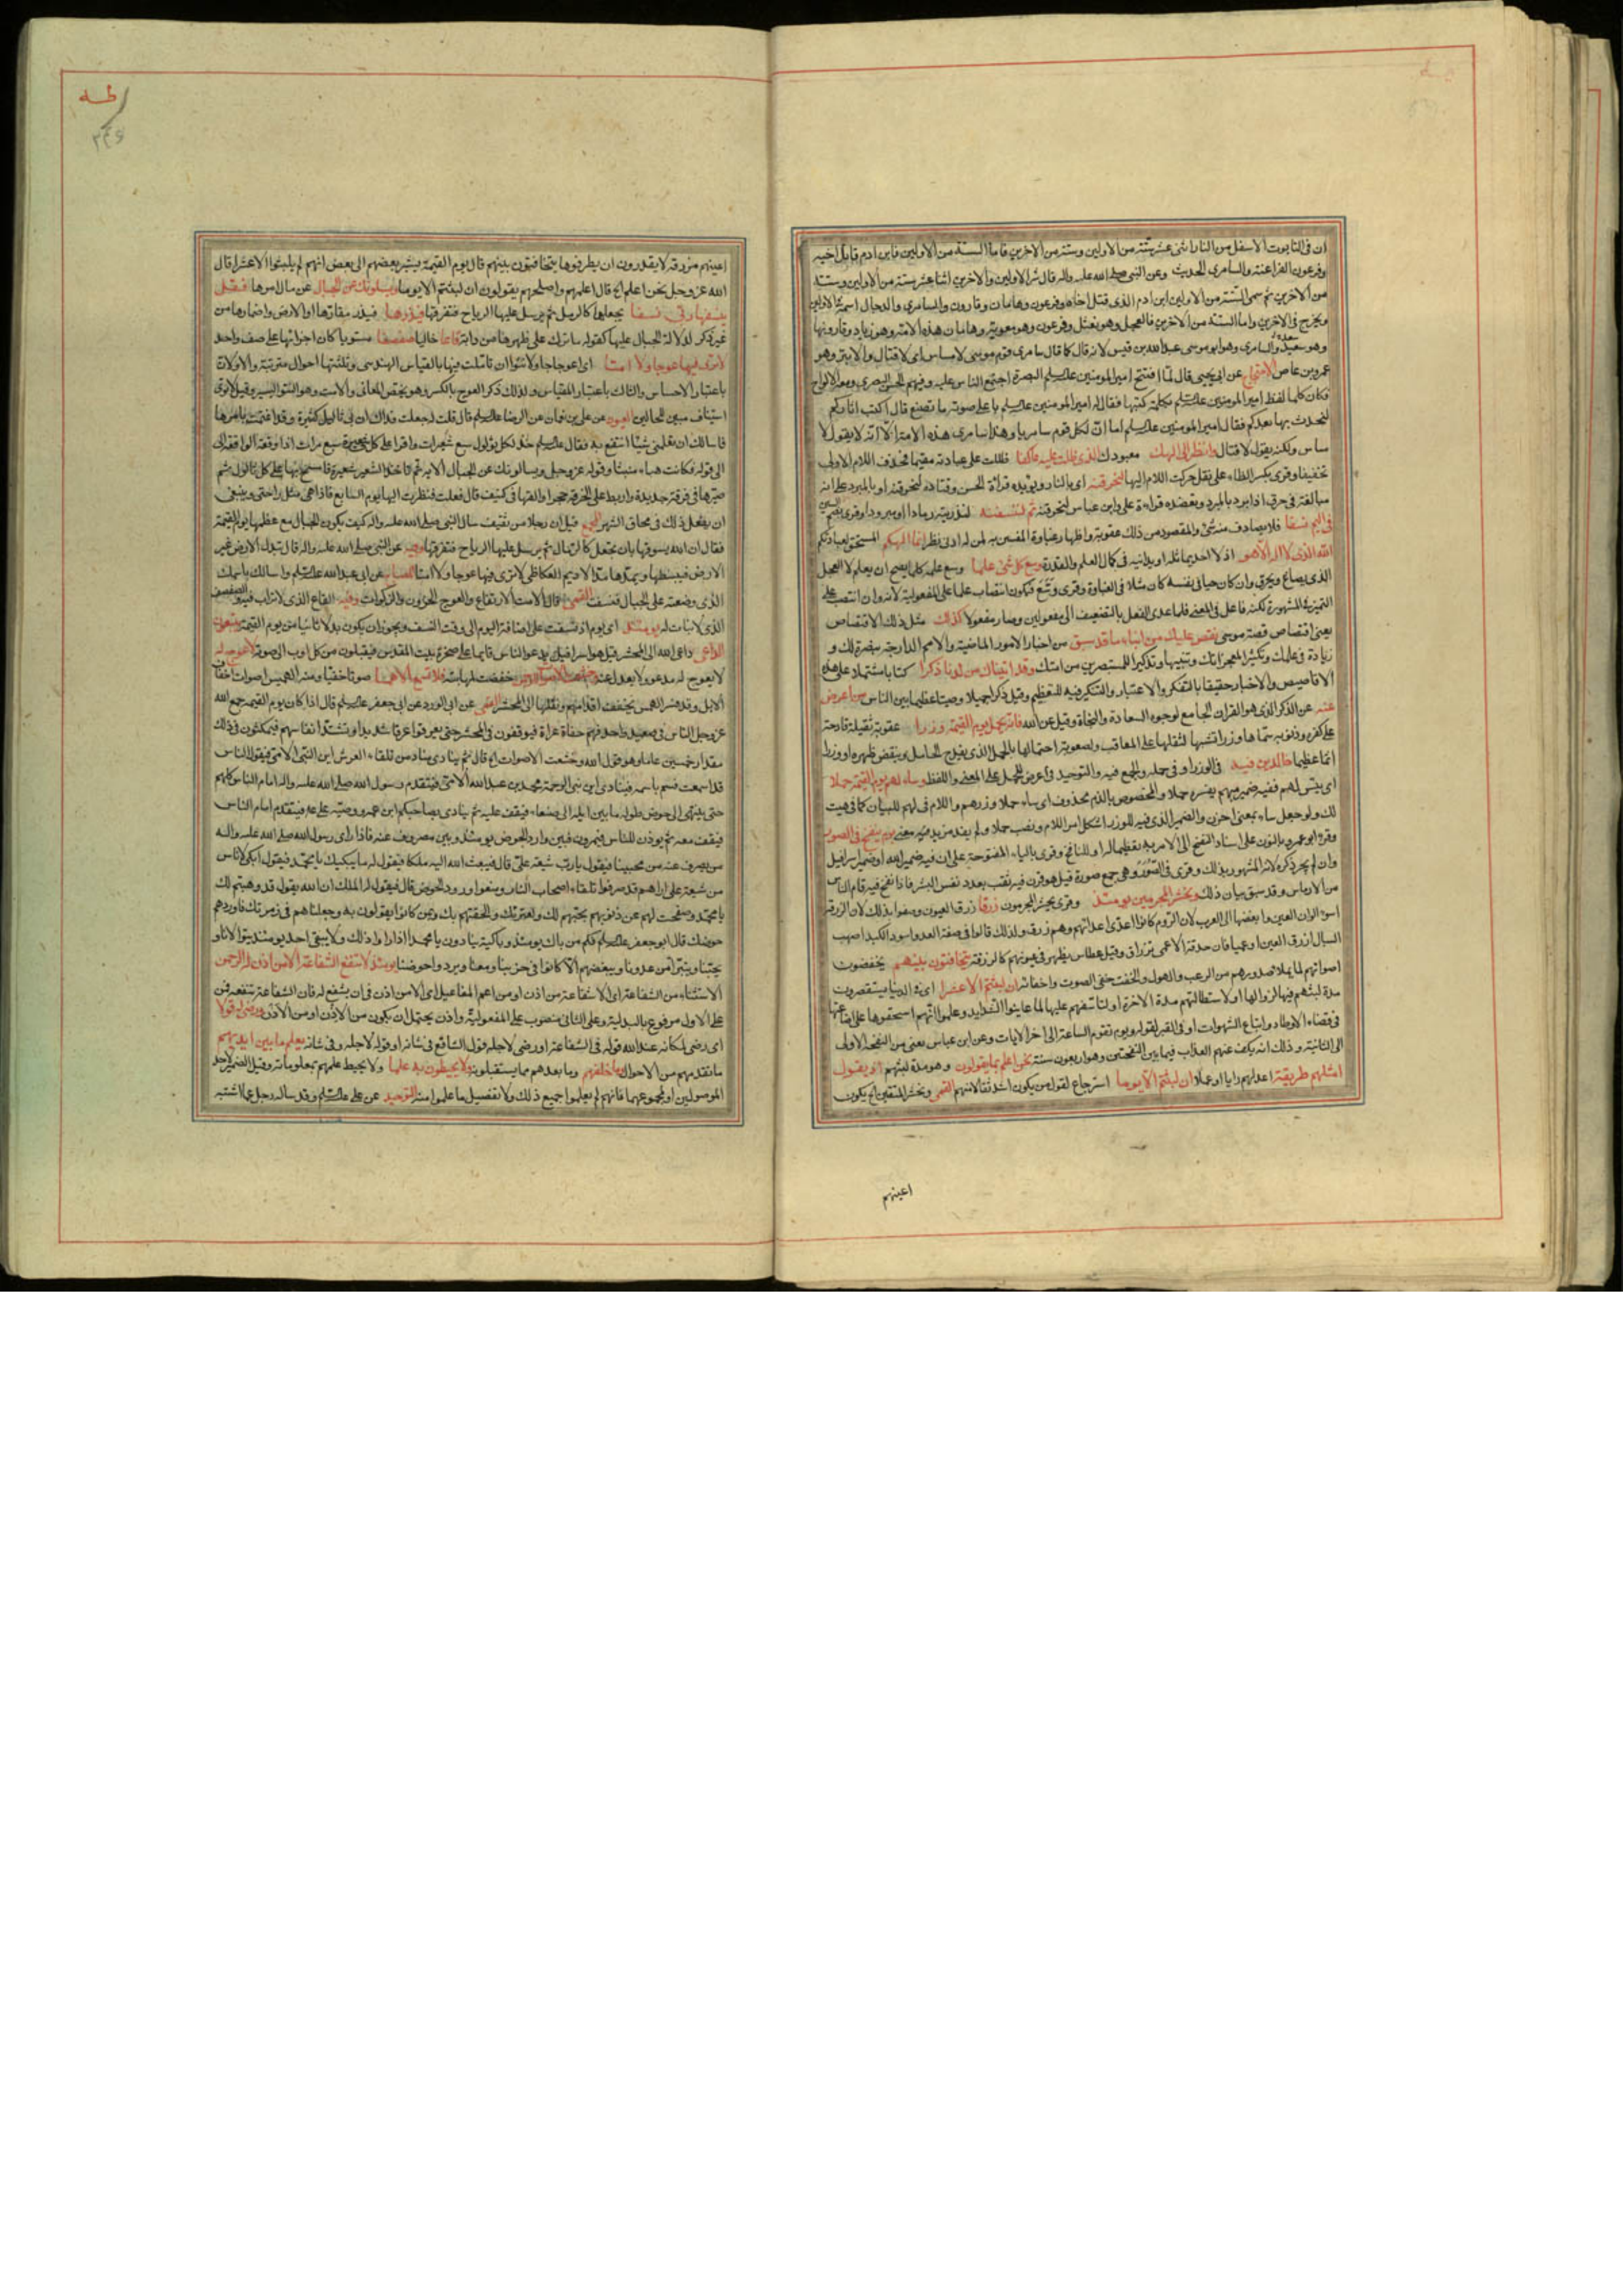 ان فى التابوت الاسفل من النار اثنى عشر ستة من الاولين وستة من الاخرين فاما الستة من الاولين فابن ادم قاتل اخيه
وفرعون الفراعنة والسامرى الحديث وعن النبى صلى الله عليه واله قال شر الاولين والاخرين اثنا عشر ستة من الاولين وستة
من الاخرين ثم سمى الستة من الاولين ابن ادم الذى قتل اخاه وفرعون وهامان وقارون والسامرى والدجال اسمه فى الاولين
ويخرج فى الاخرين واما الستة من الاخرين فالعجل وهو نعثل وفرعون وهو معوية وهامان هذه الامة وهو زياد وقارونها
وهو سعيد والسامرى وهو ابو موسى عبد الله بن قيس لانه قال كما قال سامرى قوم موسى لا مساس اى لا قتال والابتر وهو
عمرو بن عاص الاحتجاج عن ابى يحيى قال لما افتتح امير المومنين عليه السلم البصرة اجتمع الناس عليه وفيهم الحسن البصرى ومعه الالواح
فكان كلما لفظ امير المومنين عليه السلم بكلمة كتبها فقال له امير المومنين عليه السلم باعلى صوته ما تصنع قال اكتب اثاركم
لنحدث بها بعدكم فقال امير المومنين عليه السلم اما ان لكل قوم سامريا وهذا سامرى هذه الامة الا انه لا يقول لا
مساس ولكنه يقول لا قتال وانظر الى الهك معبودك الذى ظلت عليه عاكفا ظللت على عبادته مقيما فحذف اللام الاولى
تخفيفا وقرى بكسر الظاء على نقل حركت اللام اليها لنحرقنه اى بالنار ويويده قراءة الحسن وقتاده لنحرقنه او بالمبرد على انه
مبالغة فى حرق اذا برد بالمبرد ويعضده قراءة على وابن عباس لنحرقنه ثم لننسفنه لنذرينه رمادا او مبرودا وقرى بضم السين
فى اليم نسفا فلا يصادف منه شئ والمقصود من ذلك عقوبته واظهار غباوة المفتنين به لمن له ادنى نظر انما الهكم المستحق لعبادتكم
الله الذى لا اله الا هو اذ لا احد يماثله او يدانيه فى كمال العلم والقدرة وسع كل شئ علما وسع علمه كلما يصح ان يعلم لا العجل
الذى يصاغ ويحرق وان كان حيا فى نفسه كان مثلا فى الغباوة وقرى وسّع فيكون انتصاب علما على المفعولية لانه وان انتصب على
التميز فى المشهورة لكنه فاعل فى المعنى فلما عدى الفعل بالتضعيف الى مفعولين وصار مفعولا كذلك مثل ذلك الاقتصاص
يعنى اقتصاص قصة موسى نقص عليك من انباء ما قد سبق من اخبار الامور الماضية والامم الدارجة تبصرة لك و
زيادة فى علمك وتكثيرا لمعجزاتك وتنبيها وتذكيرا للمستبصرين من امتك وقد اتيناك من لدنا ذكرا كتابا مشتملا على هذه
الاقاصيص والاخبار حقيقا بالتفكر والاعتبار والتنكير فيه للتعظيم وقيل ذكرا جميلا وصيتا عظيما بين الناس من اعرض
عنه عن الذكر الذى هو القران الجامع لوجوه السعادة والنجاة وقيل عن الله فانه يحمل يوم القيمة وزرا عقوبة ثقيلة فادحة
على كفره وذنوبه سماها وزرا تشبيها لثقلها على المعاقب وصعوبة احتمالها بالحمل الذى يفدح الحامل وينقض ظهره او وزرا
اثما عظيما خالدين فيه فى الوزر او فى حمله والجمع فيه والتوحيد فى اعرض للحمل على المعنى واللفظ وساء لهم يوم القيمة حملا
اى بئس لهم ففيه ضمير مبهم يفسره حملا والمخصوص بالذم محذوف اى ساء حملا وزرهم واللام فى لهم للبيان كما فى هيت
لك ولو جعل ساء بمعنى احزن والضمير الذى فيه للوزر اشكل امر اللام ونصب حملا ولم يفد مزيد معنى يوم ينفخ فى الصور
وقرء ابو عمرو بالنون على اسناد النفخ الى الامر به تعظيما له او للنافخ وقرى بالياء المفتوحة على ان فيه ضمير الله او ضمير اسرافيل
وان لم يجر ذكره لانه المشهور بذلك وقرى فى الصُوَر وهى جمع صورة قيل هو قرن فيه نقب بعدد نفس البشر فاذا نفخ فيه قام الناس
من الارماس وقد سبق بيان ذلك ونحشر المجرمين يومئذ وقرى يحشر المجرمون زرقا زرق العيون وصفوا بذلك لان الزرقة
اسوء الوان العين وابغضها الى العرب لان الروم كانوا اعدى اعدائهم وهم زرق ولذلك قالوا فى صفة العدو اسود الكبد اصهب
السبال ازرق العين او عميا فان حدقة الاعمى تزراق وقيل عطاش يظهر فى عيونهم كالزرقة يتخافتون بينهم يخفضون
اصواتهم لما يملا صدورهم من الرعب والهول والخفت خفى الصوت واخفائه ان لبثتم الا عشرا اى فى الدنيا يستقصرون
مدة لبثهم فيها لزوالها او لاستطالتهم مدة الاخرة او لتاسفهم عليها لما عاينوا الشدايد وعلموا انهم استحقوها على اضاعتها
فى قضاء الاوطار واتباع الشهوات او فى القبر لقوله ويوم تقوم الساعة الى اخر الايات وعن ابن عباس يعنى من النفخة الاولى
الى الثانية وذلك انه يكف عنهم العذاب فيما بين النفختين وهو اربعون سنة نحن اعلم بما يقولون وهو مدة لبثهم اذ يقول
امثلهم طريقة اعدلهم رايا او عملا ان لبثتم الا يوما استرجاع لقول من يكون اشد تقالا منهم القمى ونحشر المتقين اى يكون
اعينهم
طه
٣٤٦
اعينهم مزرقة لا يقدرون ان يطرفوها يتخافتون بينهم قال يوم القيمة يشير بعضهم الى بعض انهم لم يلبثوا الا عشرا قال
الله عز وجل نحن اعلم اى قال اعلمهم واصلحهم يقولون ان لبثتم الا يوما ويسئلونك عن الجبال عن مال امرها فقل
ينسفها ربى نسفا يجعلها كالرمل ثم يرسل عليها الرياح فتفرقها فيذرها فيذر مقارها او الارض واضمارها من
غير ذكر لدلالة الجبال عليها كقوله ما ترك على ظهرها من دابة قاعا خاليا صفصفا مستويا كان اجزائها على صف واحد
لا ترى فيها عوجا ولا امتا اى اعوجاجا ولا نتوا ان تاملت فيها بالقياس الهندسى وثلثتها احوال مترتبة والاولان
باعتبار الاحساس والثالث باعتبار المقياس ولذلك ذكر العوج بالكسر وهو يخص المعانى والامت وهو النتو اليسير وقيل لا ترى
استيناف مبين للحالين العيون عن على بن نعمان عن الرضا عليه السلم قال قلت له جعلت فداك ان بى ثاليل كثيرة وقد اغتممت بامرها
فاسالك ان تعلمنى شيئا انتفع به فقال عليه السلم خذ لكل ثولول سبع شعيرات واقرا على كل شعيرة سبع مرات اذا وقعت الواقعة الى
الى قوله فكانت هباء منبثا وقوله عز وجل ويسالونك عن الجبال الاية ثم تاخذ الشعير شعيرة فامسح بها على كل ثالول ثم
صيرها فى خرقة جديدة واربط على الخرقة حجرا والقها فى كنيف قال ففعلت فنظرت اليها يوم السابع فاذا هى مثل راحتى وينبغى
ان يفعل ذلك فى محاق الشهر المجمع قيل ان رجلا من ثقيف سال النبى صلى الله عليه واله كيف يكون الجبال مع عظمها يوم القيمة
فقال ان الله يسوقها بان يجعل كالرمال ثم يرسل عليها الرياح فتفرقها وفيه عن النبى صلى الله عليه واله قال تبدل الارض غير
الارض فيبسطها ويمدها مد الاديم العكاظى لا ترى فيها عوجا ولا امتا المصباح عن ابى عبد الله عليه السلم واسالك باسمك
الذى وضعته على الجبال فنسفت القمى قال الامت الارتفاع والعوج الحزون والذكوات وفيه القاع الذى لا تراب فيه والصفصف
الذى لا نبات له يومئذ اى يوم اذ نسفت على اضافة اليوم الى وقت النسف ويجوز ان يكون بدلا ثانيا من يوم القيمة يتبعون
الداعى داعى الله الى المحشر قيل هو اسرافيل يدعو الناس قايما على صخرة بيت المقدس فيقبلون من كل اوب الى صوته لا عوج له
لا يعوج له مدعو ولا يعدل عنه وخشعت الاصوات للرحمن خفضت لمهابته فلا تسمع الا همسا صوتا خفيا ومنه الهميس لصوت اخفاف
الابل وقد فسر الهمس بخفق اقدامهم ونقلها الى المحشر القمى عن ابى الورد عن ابى جعفر عليه السلم قال اذا كان يوم القيمة جمع الله
عز وجل الناس فى صعيد واحد فهم حفاة عراة فيوقفون فى المحشر حتى يعرقوا عرقا شديدا وتشتد انفاسهم فيمكثون فى ذلك
مقدار خمسين عاما وهو قول الله وخشعت الاصوات اى قال ثم ينادى مناد من تلقاء العرش اين النبى الامى فيقول الناس
قد اسمعت فسم باسمه فينادى اين نبى الرحمة محمد بن عبد الله الامى فيتقدم رسول الله صلى الله عليه واله امام الناس كلهم
حتى ينتهى الى حوض طوله ما بين ايلة الى صنعاء فيقف عليه ثم ينادى بصاحبكم فيتقدم امام الناس
فيقف معه ثم يوذن للناس فيمرون فبين وارد الحوض يومئذ وبين مصروف عنه فاذا راى رسول الله صلى الله عليه واله
من يصرف عنه من محبينا فيقول يارب شيعة على قال فيبعث الله اليه ملكا فيقول له ما يبكيك يا محمد فيقول ابكى لاناس
من شيعة على اراهم قد صرفوا تلقاء اصحاب النار ومنعوا ورود الحوض قال فيقول له الملك ان الله يقول قد وهبتهم لك
يا محمد وصفحت لهم عن ذنوبهم بحبهم لك ولعترتك والحقتهم بك وبمن كانوا يقولون به وجعلناهم فى زمرتك فاوردهم
حوضك قال ابو جعفر عليه السلم فكم من باك يومئذ وباكية ينادون يا محمدا اذا راوا ذلك ولا يبقى احد يومئذ يتوالانا و
يحبنا ويتبرا من عدونا ويبغضهم الا كانوا فى حزبنا ومعنا ويرد واحوضنا يومئذ لا تنفع الشفاعة الا من اذن له الرحمن
الاستثناء من الشفاعة اى الا شفاعة من اذن او من اعم المفاعيل اى الا من اذن فى ان يشفع له فان الشفاعة تنفعه فمن
على الاول مرفوع بالبدلية وعلى الثانى منصوب على المفعولية واذن يحتمل ان يكون من الاذن او من الاذن ورضى له قولا
اى رضى لمكانه عند الله قوله فى الشفاعة او رضى لاجله قول الشافع فى شانه او قوله لاجله وفى شانه يعلم ما بين ايديهم
ما تقدمهم من الاحوال وما خلفهم وما بعدهم مما يستقبلونه ولا يحيطون به علما ولا يحيط علمهم بمعلوماته وقيل الضمير لاحد
الموصولين او لمجموعهما فانهم لم يعلموا جميع ذلك ولا تفصيل ما علموا منه التوحيد عن على عليه السلم وقد ساله رجل عما اشتبه